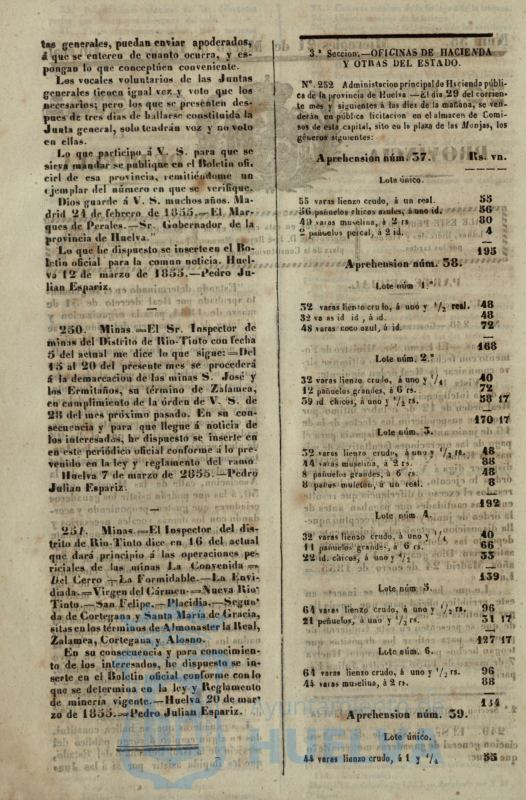 tas generales, puedan enviar apoderados,
á que se enteren de cuanto ocurra, y es-
pongan lo que conceptúen conveniente.
Los vocales voluntarios de las Juntas
generales tienen igual vez y voto que los
necesarios; pero los que se presenten des-
pues de tres dias de hallarse constituida la
Junta general, solo tendrán voz y no voto
en ellas.
Lo que participo á V. S. para que se
sirva mandar se publique en el Boletin ofi-
cial de esa provincia, remitiéndome un
ejemplar del número en que se verifique.
Dios guarde á V. S. muchos años. Ma-
drid 24 de febrero de 1855.—El Mar-
ques de Perales.—Sr. Gobernador de la
provincia de Huelva.
Lo que he dispuesto se inserte en el Bo-
letin oficial para la comun noticia. Huel-
va 12 de marzo de 1855.—Pedro Ju-
lian Espariz.
250. Minas.—El Sr. Inspector de
minas del Distrito de Rio-Tinto con fecha
5 del actual me dice lo que sigue:=Del
15 al 20 del presente mes se procederá
á la demarcacion de las minas S. José y
los Ermitaños, su término de Zalamea,
en cumplimiento de la órden de V. S. de
28 del mes próximo pasado. En su con-
secuencia y para que llegue á noticia de
los interesados, he dispuesto se inserte en
en este periódico oficial conforme á lo pre-
venido en la ley y reglamento del ramo
Huelva 7 de marzo de 2855.—Pedro
Julian Espariz.
251. Minas.—El Inspector del dis-
trito de Rio-Tinto dice en 16 del actual
que dará principio á las operaciones pe-
riciales de las minas La Convenida =
Del Cerro —La Formidable.—La Envi-
diada.—Virgen del Cármen.—Nueva Rio
Tinto.—San Felipe.—Placidia.—Segun-
da de Cortegana y Santa María de Gracia,
sitas en los términos de Almonaster la Real,
Zalamea, Cortegana y Alosno.
En su consecuencia y para conocimien-
to de los interesados, he dispuesto se in-
serte en el Boletin oficial conforme con lo
que se determina en la ley y Reglamento
de minería vigente.—Huelva 20 de mar-
zo de 1855.—Pedro Julian Espariz.
3.ª Seccion.—OFICINAS DE HACIENDA
Y OTRAS DEL ESTADO.
Nº. 252 Administacion principal de Hacienda públi-
ca de la provincia de Huelva —El dia 29 del corrien-
te mes y siguientes á las diez de la mañana, se ven-
derán en pública licitacion en el almacen de Comi-
sos de esta capital, sito en la plaza de las Monjas, los
géneros siguientes:
Aprehension núm. 37. Rs. vn.
Lote único.
55 varas lienzo crudo, á un real. 55
56 pañuelos chicos azules, á uno id. 56
40 varas muselina, á 2 rs 80
2 pañuelos percal, á 2 id. 4
195
Aprehension núm. 38.
Lote núm 1.º
32 varas lienzo crudo, á uno y 1/2 real. 48
32 varas id id , á id. 48
48 varas coco azul, á id. 72
168
Lote núm. 2.º
32 varas lienzo crudo, á uno y 1/4 40
12 pañuelos grandes, á 6 rs. 72
39 id chicos, á uno y 1/2 rs. 58 17
170 17
Lote núm. 3.
32 varas lienzo crudo, á uno y 1/2 rs. 48
44 varas muselina, á 2 rs. 88
8 pañuelos grandes, á 6 rs. 48
8 paños muleton, á un real. 8
192
Lote núm 4.
32 varas lienzo crudo, á uno y 1/4 40
11 pañuelos grandes, á 6 rs. 66
22 id. chicos, á uno y 1/2 33
139
Lote núm 5.
64 varas lienzo crudo, á uno y 1/2 rs. 96
21 peñuelos, á uno y 1/2 rs. 31 17
127 17
Lote núm. 6.
64 varas lienzo crudo, á uno y 1/2 rs. 96
44 varas muselina, á 2 rs. 88
184
Aprehension núm. 39.
Lote único.
44 varas lienzo crudo, á 1 y 1/4 55
Ayuntamiento de
HUELVA